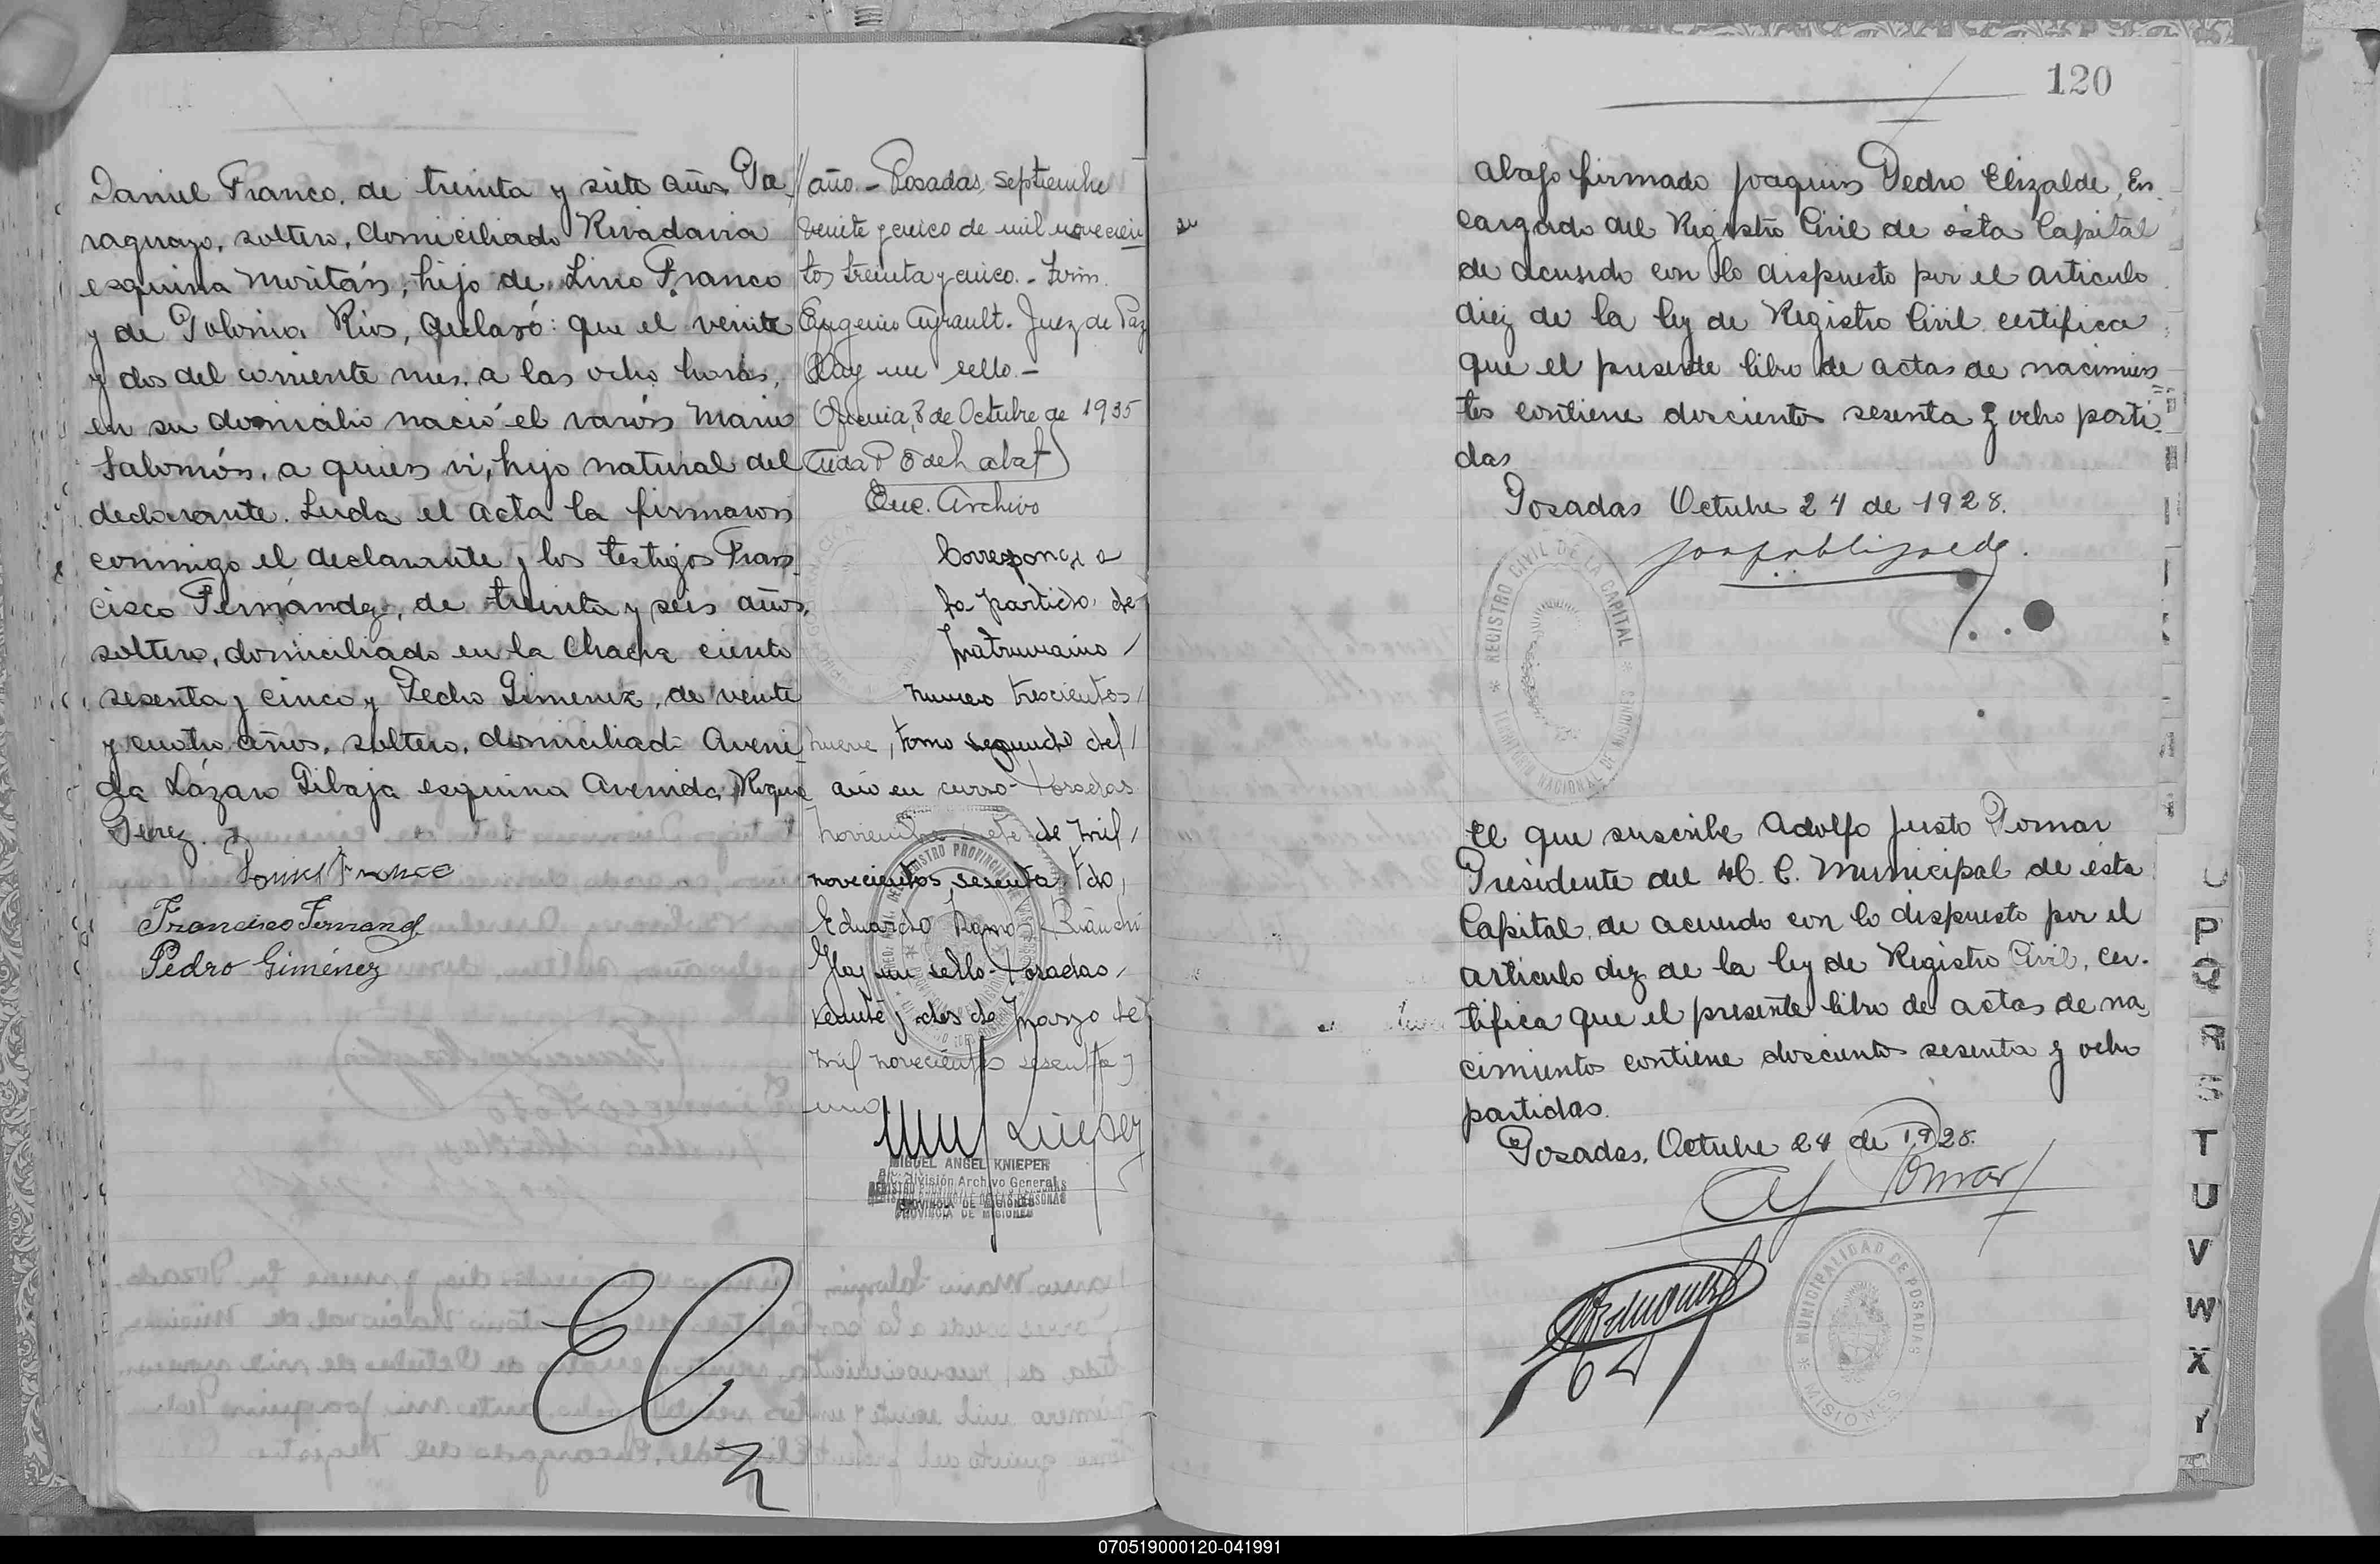 Daniel Franco, de treinta y siete años Pa-
raguayo, soltero, domiciliado Rivadavia
esquina Moritán, hijo de Lino Franco
y de Polonia Rios, declaró: que el veinte
y dos del corriente mes, a las ocho horas,
en su domicilio nació el varón Mario
Salomón, a quien vi, hijo natural del
declarante. Leida el acta la firmaron
conmigo el declarante y los testigos Fran-
cisco Fernández, de treinta y seis años,
soltero, domiciliado en la Chacra ciento
sesenta y cinco y Pedro Gimenez, de veinte
y cuatro años, soltero, domiciliado Aveni-
da Lázaro Gibaja esquina Avenida Roque
Perez.
Daniel Franco
Francisco Fernand
Pedro Giménez
EC
// año.- Posadas, septiembre
veinte y cinco de mil novecien
tos treinta y cinco.- Firm.
Eugenio Ayrault. Juez de Paz
Hay un sello.-
Oficina, 8 de Octubre de 1935
Enc. Archivo
Corresponde a
la partida de
matrimonio /
numero trescientos /
nueve, tomo segundo del /
año en curso- Posadas
noviembre siete de mil /
novecientos sesenta. Fdo,
Eduardo Ramon Bianchi
Hay un sello- Posadas,
veinte y dos de Marzo de
mil novecientos sesenta y
uno.
MIGUEL ANGEL KNIEPER
División Archivo General
PROVINCIA DE MISIONES
120
Abajo firmado Joaquin Pedro Elizalde, En-
cargado del Registro Civil de ésta Capital
de acuerdo con lo dispuesto por el articulo
diez de la ley de Registro Civil certifica
que el presente libro de actas de nacimien
tos contiene doscientos sesenta y ocho parti-
das
Posadas Octubre 24 de 1928.
REGISTRO CIVIL DE LA CAPITAL
TERRITORIO NACIONAL DE MISIONES
El que suscribe Adolfo Justo Pomar
Presidente del H. C. Municipal de ésta
Capital, de acuerdo con lo dispuesto por el
articulo diez de la ley de Registro Civil, cer-
tifica que el presente libro de actas de na-
cimientos contiene doscientos sesenta y ocho
partidas.
Posadas, Octubre 24 de 1928.
A J Pomar
MUNICIPALIDAD DE POSADAS
MISIONES
P
Q
R
S
T
U
V
W
X
Y
070519000120-041991